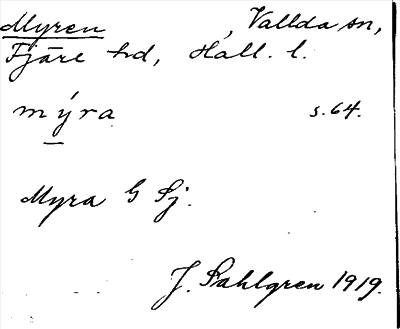 Myren, Vallda sn,
Fjäre hd, Hall. l.
mýra s. 64.
Myra G Sj.
J. Sahlgren 1919.